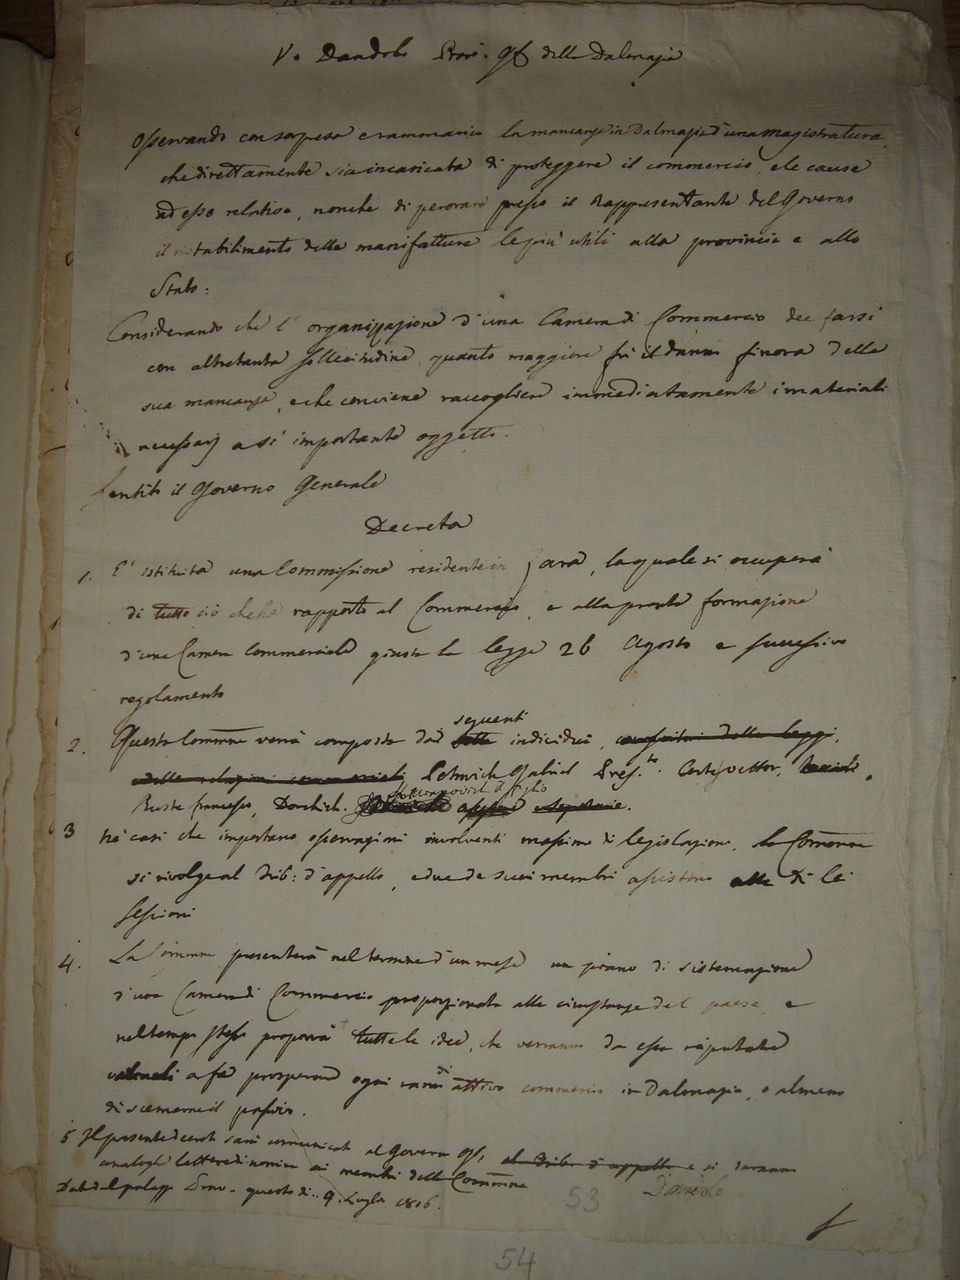 V. Dandolo Prov. Gle della Dalmazia
Osservando con sorpresa e rammarico la mancanza in Dalmazia d'una magistratura,
che direttamente sia incaricata di proteggere il commercio, e le cause
ad esso relative, nonchè di perorare presso il Rappresentante del Governo
il ristabilimento delle manifatture le più utili alla provincia e allo
Stato:
Considerando che l'organizzazione d'una Camera di Commercio dee farsi
con altretanta sollecitudine quanto maggiore fù il danno finora della
sua mancanza, e che conviene raccogliere immediatamente i materiali
necessarj a sì importante oggetto.
Sentito il Governo Generale
Decreta
1. E' istituita una Commissione residente in Zara, la quale si occuperà
di tutto ciò che ha rapporto al Commercio, e alla pronta formazione
d'una Camera Commerciale giusta la legge 26 Agosto e successivo
regolamento
2. Questa Commne verrà composta dai
seguenti
individui,
Petrovich Gabriel Pres.te
Borelich.
3 Ne' casi che importano osservazioni involventi massime di legislazione, la Commne
si rivolge al Trib: d'appello, e due de suoi membri assistono alle di lei
sessioni
4. La Commne presenterà nel termine d'un mese un piano di sistemazione
d'una Camera di Commercio proporzionata alle circostanze del paese, e
nel tempo stesso proporrà tutte le idee, che verranno da essa riputate
a far prosperare ogni ramo di attivo commercio in Dalmazia, o almeno
di scemarne il passivo.
5 Il presente decreto sarà comunicato al Governo Gle, al Trib. d'appello e si daranno
analoghe lettere di nomina ai membri della Commne
Data dal palazzo Prov. questo dì 9. Luglio 1806.
Dandolo
53
54